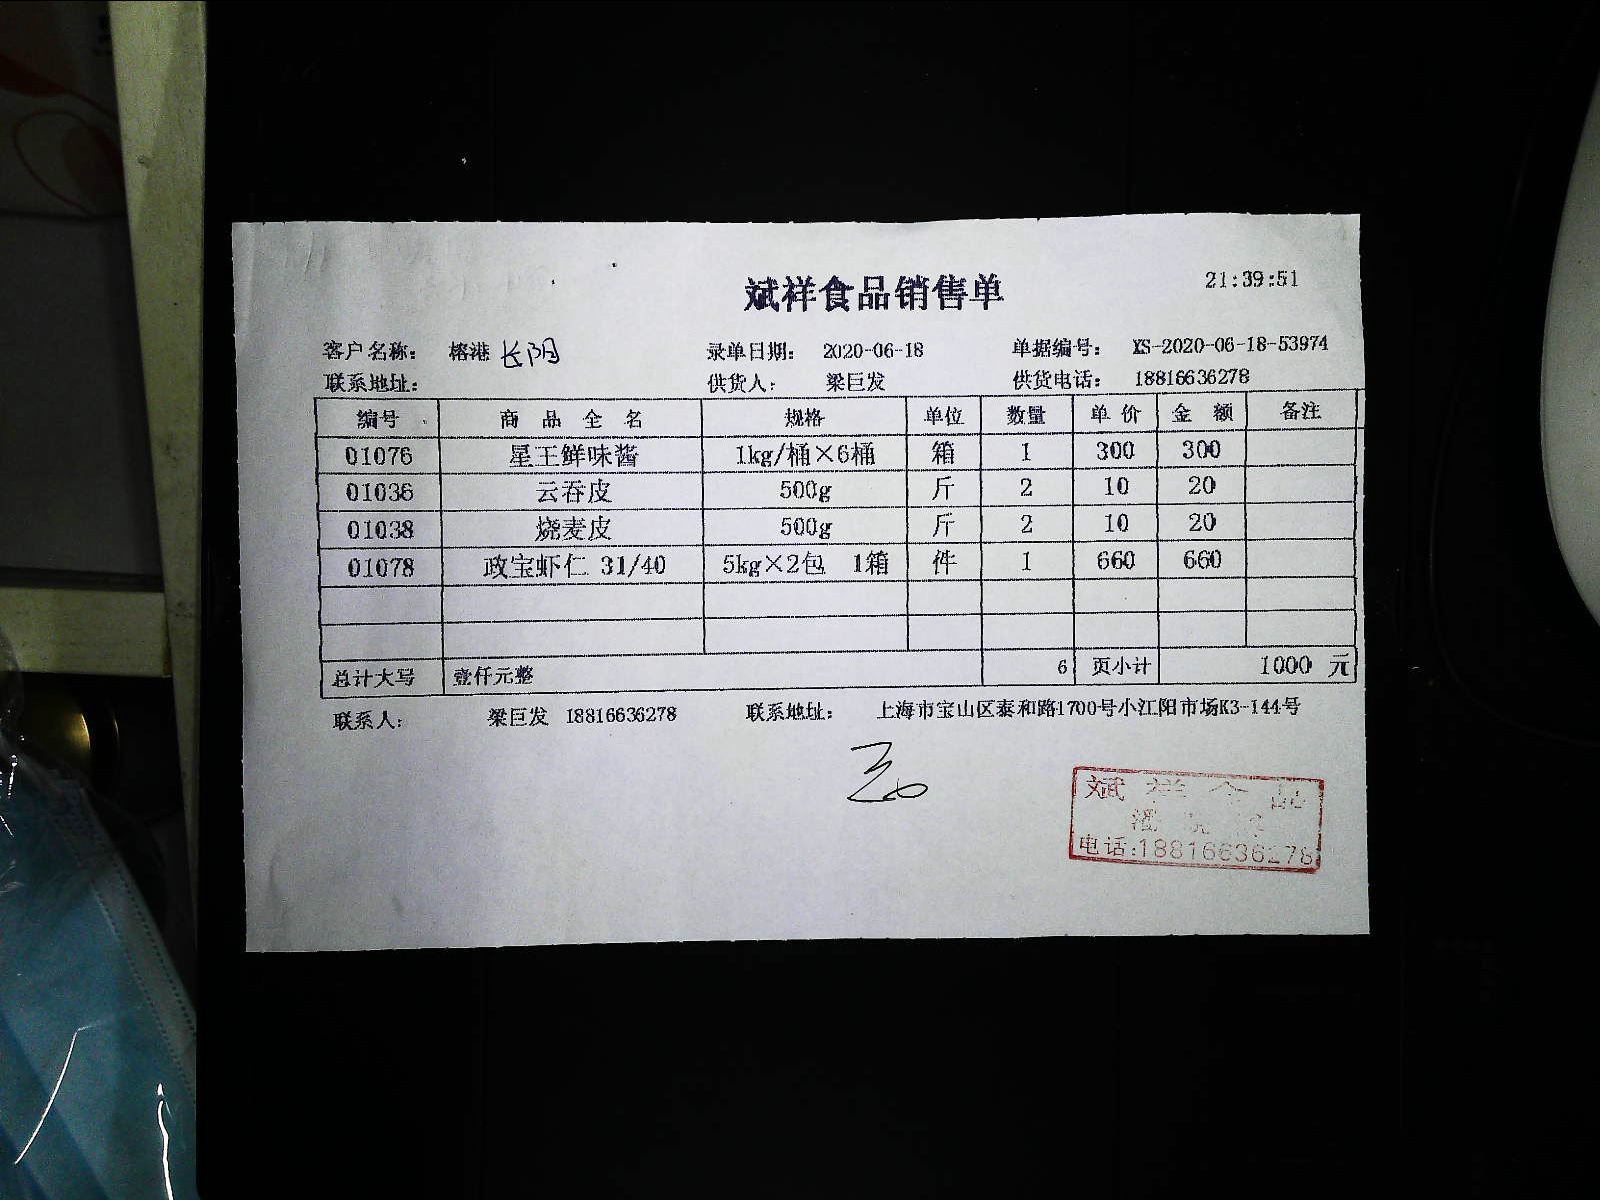 斌祥食品销售单 21:39:51
客户名称: 榕港 长阳 录单日期: 2020-06-18 单据编号: XS-2020-06-18-53974
联系地址: 供货人: 梁巨发 供货电话: 18816636278
编号 商品全名 规格 单位 数量 单价 金额 备注
01076 星王鲜味酱 1kg/桶×6桶 箱 1 300 300
01036 云吞皮 500g 斤 2 10 20
01038 烧麦皮 500g 斤 2 10 20
01078 政宝虾仁 31/40 5kg×2包 1箱 件 1 660 660
总计大写 壹仟元整 6 页小计 1000 元
联系人: 梁巨发 18816636278 联系地址: 上海市宝山区泰和路1700号小江阳市场K3-144号
斌祥食品
电话:18816636278